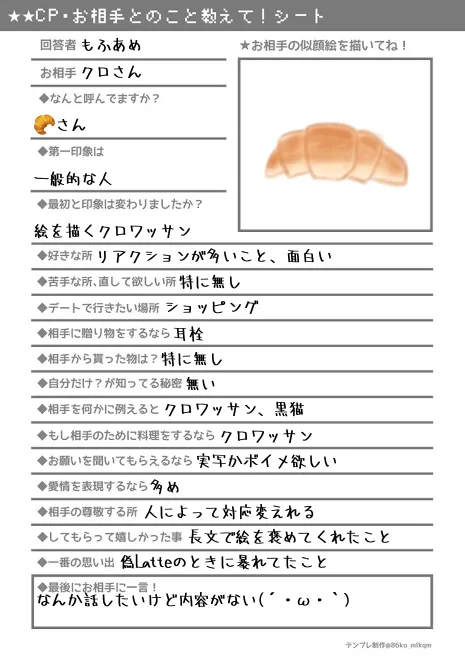 ★★CP・お相手とのこと教えて！シート
回答者 もふあめ
★お相手の似顔絵を描いてね！
お相手 クロさん
◆なんと呼んでますか？
🥐さん
◆第一印象は
一般的な人
◆最初と印象は変わりましたか？
絵を描くクロワッサン
◆好きな所 リアクションが多いこと、面白い
◆苦手な所、直して欲しい所 特に無し
◆デートで行きたい場所 ショッピング
◆相手に贈り物をするなら 耳栓
◆相手から貰った物は？ 特に無し
◆自分だけ？が知ってる秘密 無い
◆相手を何かに例えると クロワッサン、黒猫
◆もし相手のために料理をするなら クロワッサン
◆お願いを聞いてもらえるなら 実写かボイメ欲しい
◆愛情を表現するなら 多め
◆相手の尊敬する所 人によって対応変えれる
◆してもらって嬉しかった事 長文で絵を褒めてくれたこと
◆一番の思い出 偽Latteのときに暴れてたこと
◆最後にお相手に一言！
なんか話したいけど内容がない(´・ω・`)
テンプレ制作@86ko_mlkqm